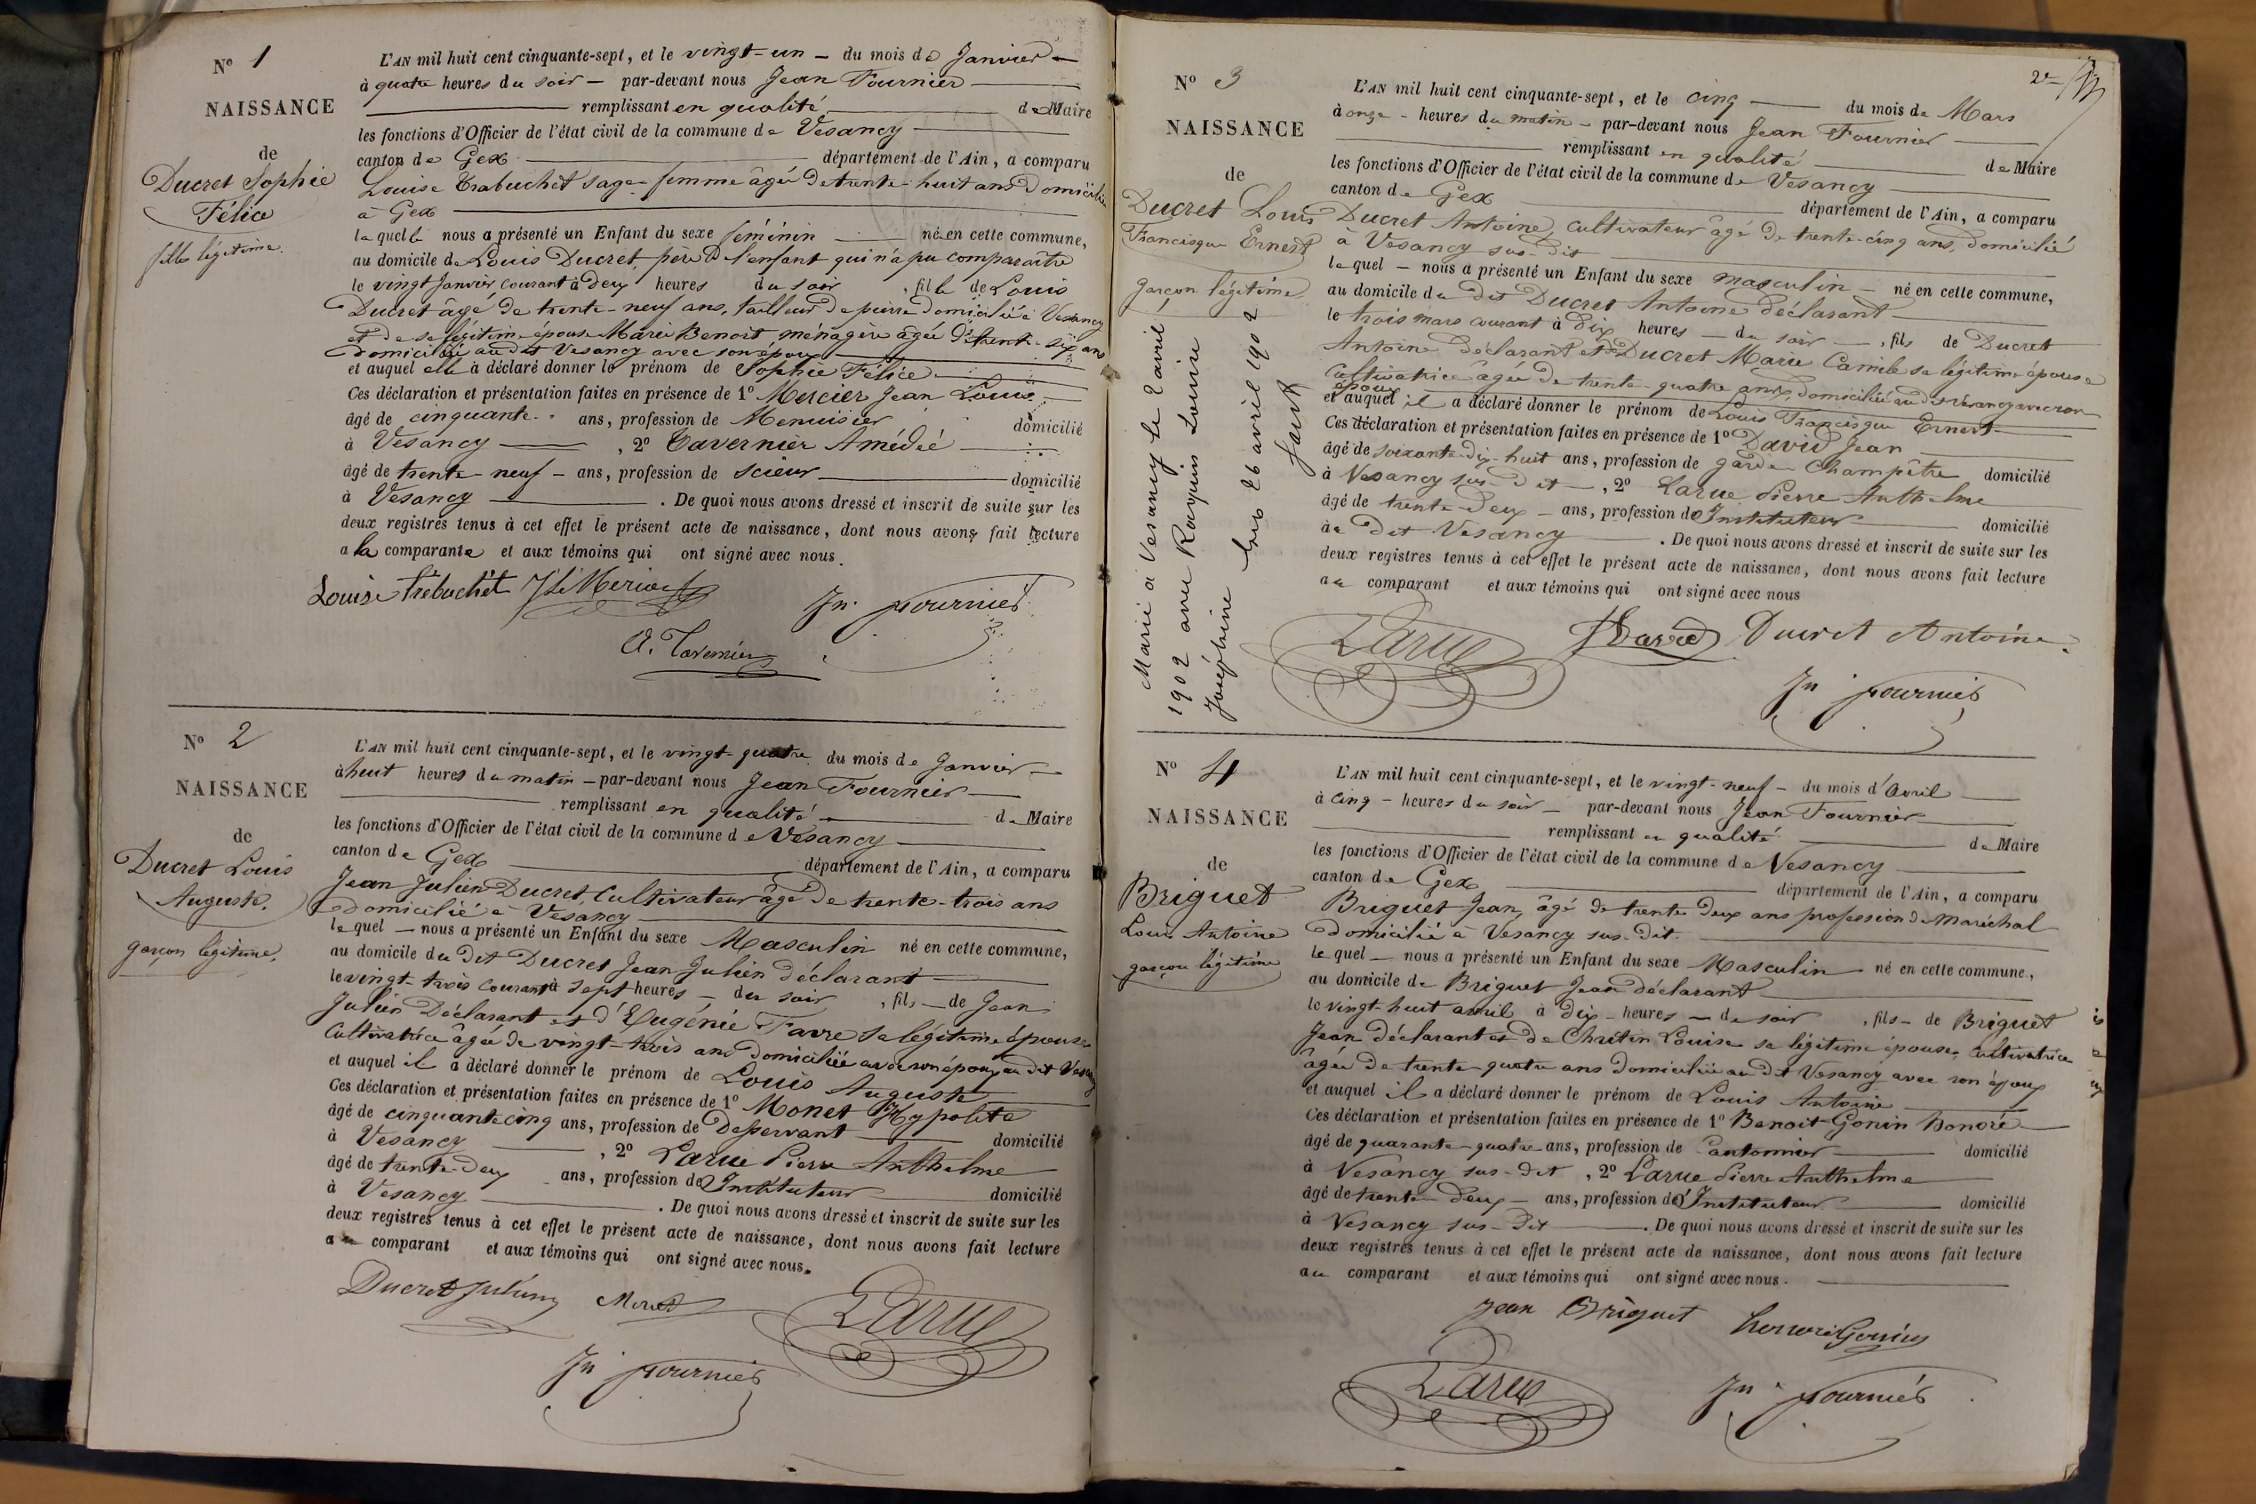 N° 1
NAISSANCE
de
Ducret Sophie
Félice
fille légitime.
L'AN mil huit cent cinquante-sept, et le vingt-un — du mois de Janvier
à quatre heures du soir — par-devant nous Jean Fournier
remplissant en qualité de Maire
les fonctions d'Officier de l'état civil de la commune de Vesancy
canton de Gex département de l'Ain, a comparu
Louise Trabuchet sage-femme âgée de trente-huit ans domiciliée
à Gex
laquelle nous a présenté un Enfant du sexe féminin né en cette commune,
au domicile de Louis Ducret, père de l'enfant qui n'a pu comparaître
le vingt Janvier courant à deux heures du soir, fille de Louis
Ducret âgé de trente-neuf ans, tailleur de pierre domicilié à Vesancy
et de sa légitime épouse Marie Benoit, ménagère âgée de trente-six ans
domiciliée au dit Vesancy avec son époux
et auquel elle a déclaré donner le prénom de Sophie Félice
Ces déclaration et présentation faites en présence de 1° Mercier Jean Louis
âgé de cinquante ans, profession de Menuisier domicilié
à Vesancy, 2° Tavernier Amédée
âgé de trente-neuf — ans, profession de scieur domicilié
à Vesancy. De quoi nous avons dressé et inscrit de suite sur les
deux registres tenus à cet effet le présent acte de naissance, dont nous avons fait lecture
a la comparante et aux témoins qui ont signé avec nous.
Louise Trébuchet
Jn Fournier
A. Tavernier
N° 2
NAISSANCE
de
Ducret Louis
Auguste.
garçon légitime.
L'AN mil huit cent cinquante-sept, et le vingt-quatre du mois de Janvier
à huit heures du matin — par-devant nous Jean Fournier
remplissant en qualité de Maire
les fonctions d'Officier de l'état civil de la commune de Vesancy
canton de Gex département de l'Ain, a comparu
Jean Julien Ducret, Cultivateur âgé de trente-trois ans
domicilié à Vesancy
lequel — nous a présenté un Enfant du sexe Masculin né en cette commune,
au domicile du dit Ducret Jean Julien déclarant
le vingt-trois courant à sept heures — du soir, fils — de Jean
Julien Déclarant et d'Eugénie Favre sa légitime épouse
Cultivatrice âgée de vingt-trois ans domiciliée avec son époux au dit Vesancy
et auquel il a déclaré donner le prénom de Louis Auguste
Ces déclaration et présentation faites en présence de 1° Monet Hypolite
âgé de cinquante cinq ans, profession de Desservant domicilié
à Vesancy, 2° Larue Pierre Anthelme
âgé de trente-deux ans, profession de Instituteur domicilié
à Vesancy. De quoi nous avons dressé et inscrit de suite sur les
deux registres tenus à cet effet le présent acte de naissance, dont nous avons fait lecture
au comparant et aux témoins qui ont signé avec nous.
Ducret Julien Monet Larue
Jn Fournier
2e
N° 3
NAISSANCE
de
Ducret Louis
Francisque Ernest
garçon légitime
Marié à Vesancy le 2 avril
1902 avec Raquin Louise
Joséphine
26 avril 1902
L'AN mil huit cent cinquante-sept, et le cinq du mois de Mars
à onze — heures du matin — par-devant nous Jean Fournier
remplissant en qualité de Maire
les fonctions d'Officier de l'état civil de la commune de Vesancy
canton de Gex département de l'Ain, a comparu
Ducret Antoine, Cultivateur âgé de trente-cinq ans, domicilié
à Vesancy sus-dit
lequel — nous a présenté un Enfant du sexe masculin — né en cette commune,
au domicile du dit Ducret Antoine déclarant
le trois mars courant à dix heures — du soir —, fils de Ducret
Antoine déclarant et de Ducret Marie Camile sa légitime épouse
Cultivatrice âgée de trente-quatre ans, domiciliée au dit Vesancy avec son
époux
et auquel il a déclaré donner le prénom de Louis Francisque Ernest
Ces déclaration et présentation faites en présence de 1° David Jean
âgé de soixante-dix-huit ans, profession de garde Champêtre domicilié
à Vesancy sus-dit —, 2° Larue Pierre Anthelme
âgé de trente-deux — ans, profession de Instituteur domicilié
à dit Vesancy. De quoi nous avons dressé et inscrit de suite sur les
deux registres tenus à cet effet le présent acte de naissance, dont nous avons fait lecture
au comparant et aux témoins qui ont signé avec nous
Larue David Ducret Antoine
Jn Fournier
N° 4
NAISSANCE
de
Briguet
Louis Antoine
garçon légitime
L'AN mil huit cent cinquante-sept, et le vingt-neuf — du mois d'Avril
à cinq — heures du soir — par-devant nous Jean Fournier
remplissant en qualité de Maire
les fonctions d'Officier de l'état civil de la commune de Vesancy
canton de Gex département de l'Ain, a comparu
Briguet Jean, âgé de trente deux ans profession de Maréchal
domicilié à Vesancy sus-dit.
lequel — nous a présenté un Enfant du sexe Masculin né en cette commune,
au domicile de Briguet Jean déclarant
le vingt-huit avril à dix — heures — du soir, fils — de Briguet
Jean déclarant et de Chrétin Louise sa légitime épouse, Cultivatrice
âgée de trente quatre ans domiciliée au dit Vesancy avec son époux
et auquel il a déclaré donner le prénom de Louis Antoine
Ces déclaration et présentation faites en présence de 1° Benoit-Gonin Honoré
âgé de quarante-quatre ans, profession de Cantonnier domicilié
à Vesancy sus-dit, 2° Larue Pierre Anthelme
âgé de trente-deux — ans, profession d'Instituteur domicilié
à Vesancy sus-dit. De quoi nous avons dressé et inscrit de suite sur les
deux registres tenus à cet effet le présent acte de naissance, dont nous avons fait lecture
au comparant et aux témoins qui ont signé avec nous.
Jean Briguet honoré Gonin
Larue Jn Fournier